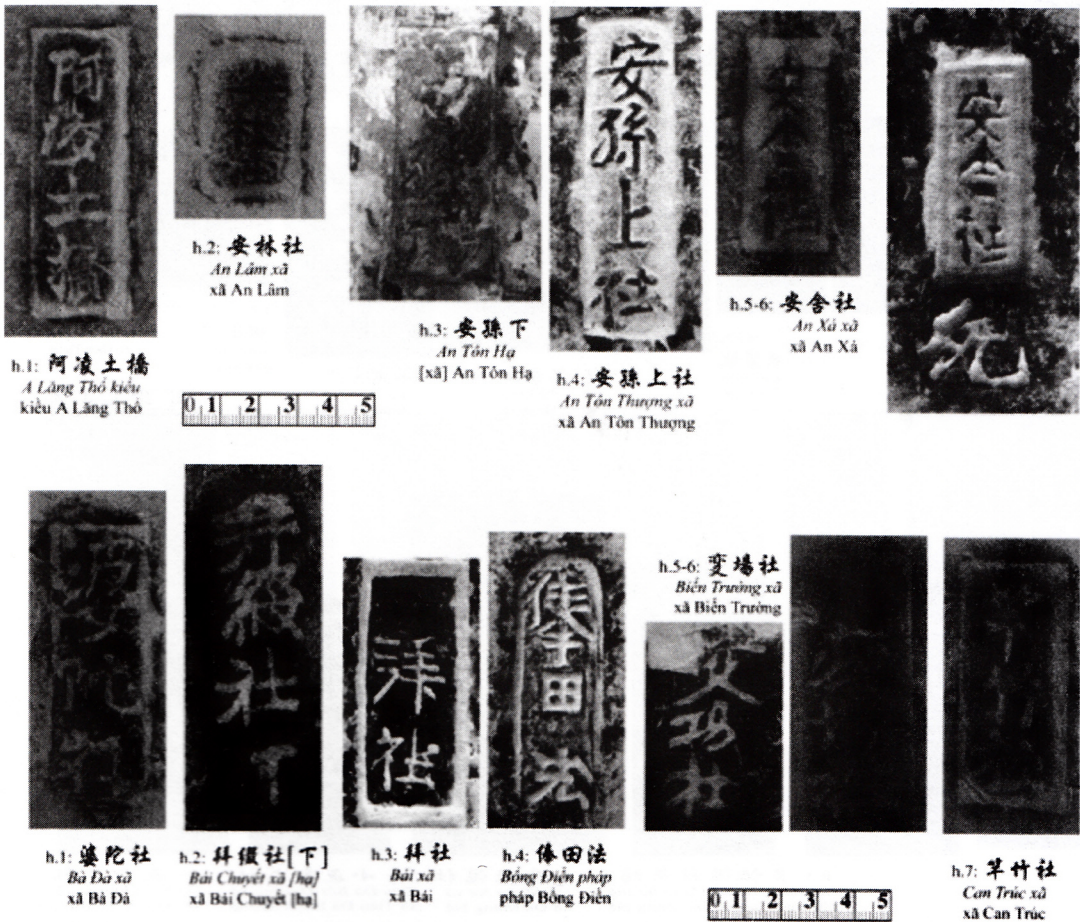 阿凌土橋
安孫上社
安舍社
h.1: 阿凌土橋
A Lăng Thổ kiều
kiều A Lăng Thổ
h.2: 安林社
An Lâm xã
xã An Lâm
h.3: 安孫下
An Tôn Hạ
[xã] An Tôn Hạ
h.4: 安孫上社
An Tôn Thượng xã
xã An Tôn Thượng
h.5-6: 安舍社
An Xá xã
xã An Xá
0 1 2 3 4 5
拜社
俸田法
h.1: 婆陀社
Bà Đà xã
xã Bà Đà
h.2: 拜綴社[下]
Bái Chuyết xã [hạ]
xã Bái Chuyết [hạ]
h.3: 拜社
Bái xã
xã Bái
h.4: 俸田法
Bổng Điền pháp
pháp Bổng Điền
h.5-6: 变場社
Biến Trường xã
xã Biến Trường
0 1 2 3 4 5
h.7: 竿竹社
Can Trúc xã
xã Can Trúc